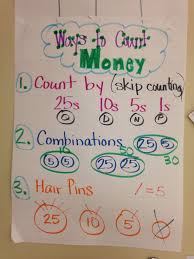 Ways to Count
Money
1. Count by (skip counting)
25s 10s 5s 1s
Q D N P
2. Combinations 25 25
10 50
5 5 25 25 5
30
3. Hair Pins / = 5
25 10 5